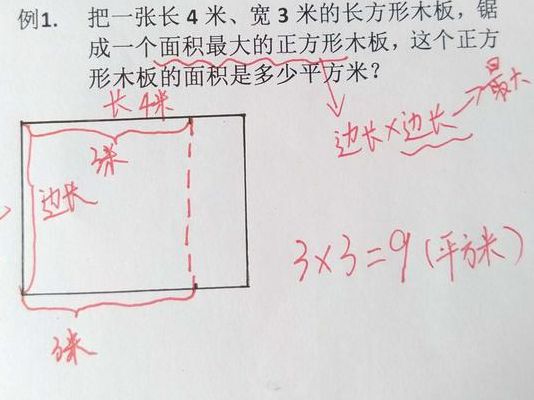 例1. 把一张长 4 米、宽 3 米的长方形木板，锯
成一个面积最大的正方形木板，这个正方
形木板的面积是多少平方米？
长 4米
最大
边长×边长
3米
边长
3×3=9(平方米)
3米